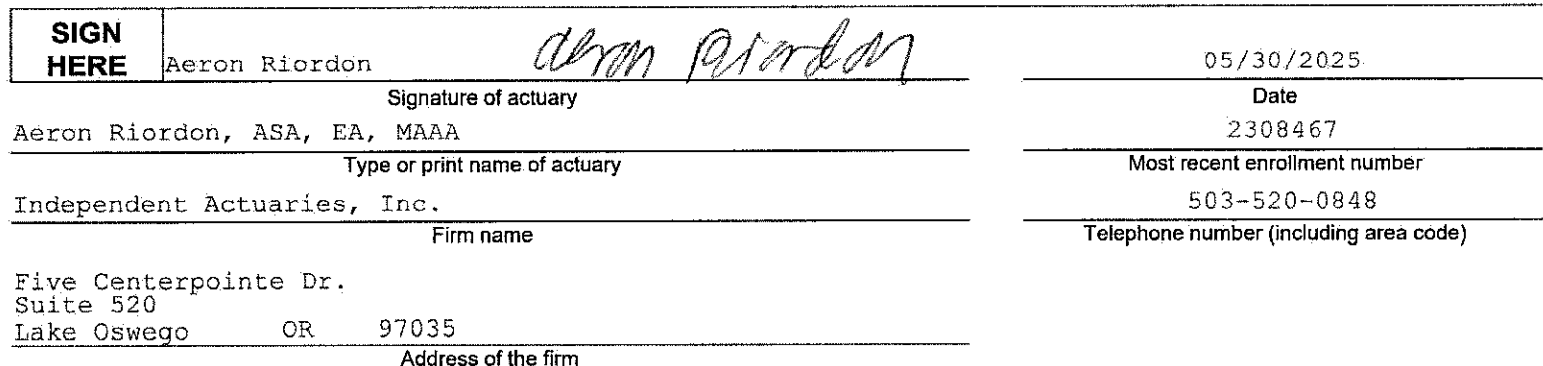 SIGN
HERE
Aeron Riordon Aeron Riordon 05/30/2025
Signature of actuary Date
Aeron Riordon, ASA, EA, MAAA 2308467
Type or print name of actuary Most recent enrollment number
Independent Actuaries, Inc. 503-520-0848
Firm name Telephone number (including area code)
Five Centerpointe Dr.
Suite 520
Lake Oswego OR 97035
Address of the firm